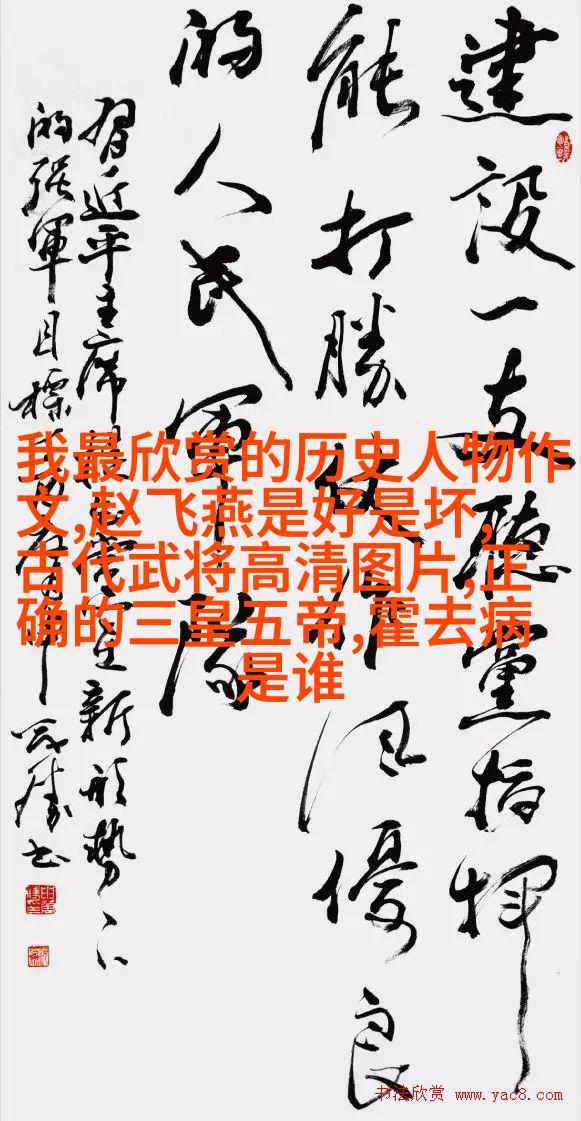 建設一支聽黨指揮
能打勝仗作風優良
的人民軍隊
習近平主席 新形勢下
的强軍目標
我最欣赏的历史人物作
文,赵飞燕是好是坏,
古代武将高清图片,正
确的三皇五帝,霍去病
是谁
书法欣赏 www.yac8.com